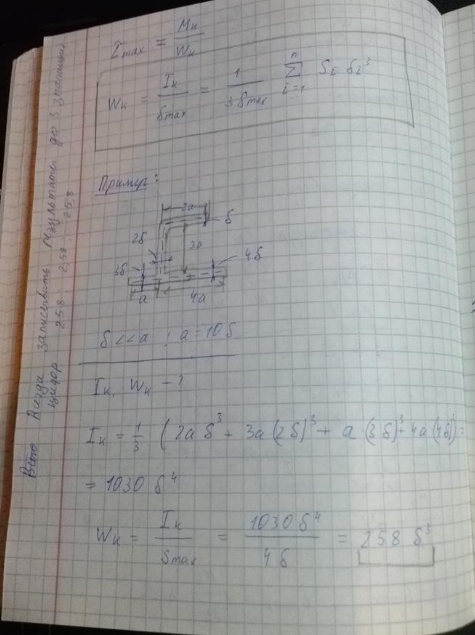 τmax = Mк / Wк
Wк = Iк / δmax = 1 / 3δmax n Σ i=1 Si δi³
Пример:
2a
δ
2δ
3a
3δ
4δ
a
4a
δ << a ; a = 10δ
Iк, Wк - ?
Iк = 1/3 (2aδ³ + 3a(2δ)³ + a(3δ)³ + 4a(4δ)³) =
= 1030 δ⁴
Wк = Iк / δmax = 1030 δ⁴ / 4δ = 258 δ³
Всегда записывать результаты до 3 значащих
цифр 258 2,58 25,8